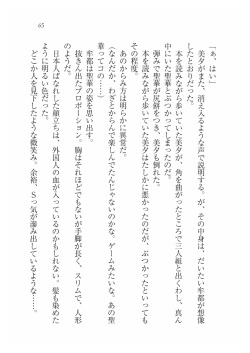 65
「ぁ、はい」
美夕がまた、消え入るような声で説明する。が、その中身は、だいたい牟都が想像
したとおりだった。
本を読みながら歩いていた美夕が、角を曲がったところで三人組と出くわし、真ん
中にいた聖華とぶつかってしまった。
弾みで聖華が尻餅をつき、美夕も倒れた。
本を読みながら歩いていた美夕はたしかに悪かったのだが、ぶつかったといっても
その程度。
あのからみ方は明らかに異常だ。
（なんだか、わざとからんで楽しんでたんじゃないのかな。ゲームみたいな。あの聖
華ってコの……）
牟都は聖華の姿を思い出す。
抜きん出たプロポーション。胸はそれほどでもないが手脚が長く、スリムで、人形
のようだ。
日本人ばなれした顔立ちは、外国人の血が入っているのかもしれない。髪も染めた
ように明るい色だった。
どこか人を見下したような微笑み。余裕、Ｓっ気が滲み出しているような……。